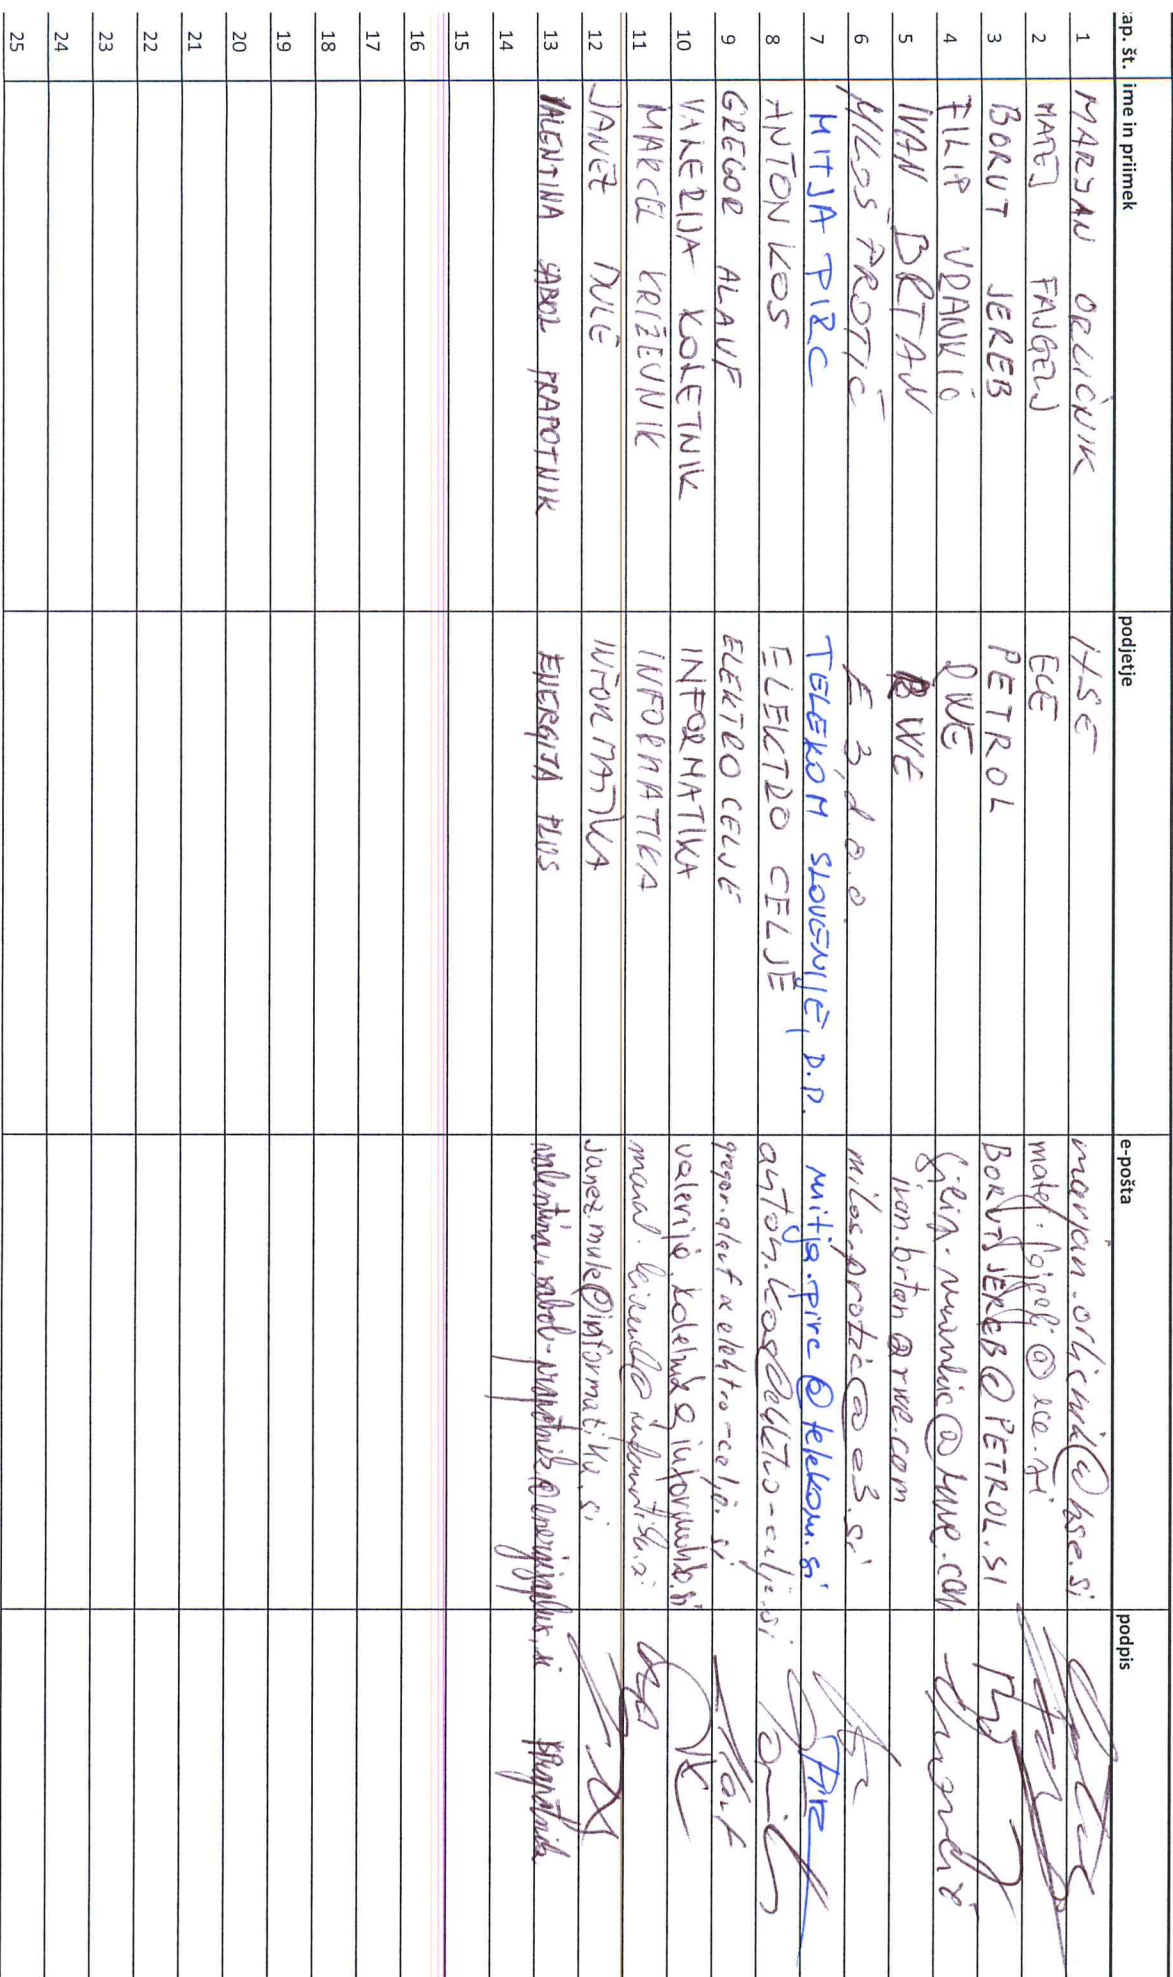 zap. št. ime in priimek podjetje e-pošta podpis
1 MARJAN ORLIČNIK HSE marjan.orlicnik@hse.si
2 MATEJ FAJGELJ ECE matej.fajgelj@ece.si
3 BORUT JEREB PETROL BORUT.JEREB@PETROL.SI
4 FILIP VRANKIĆ RWE filip.vrankic@rwe.com
5 IVAN BRTAN RWE ivan.brtan@rwe.com
6 MILOŠ PROTIĆ E 3 d.o.o. milos.protic@e3.si
7 MITJA PIRC TELEKOM SLOVENIJE, D.D. mitja.pirc@telekom.si
8 ANTON KOS ELEKTRO CELJE anton.kos@elektro-celje.si
9 GREGOR ALAUF ELEKTRO CELJE gregor.alauf@elektro-celje.si
10 VALERIJA KOLETNIK INFORMATIKA valerija.koletnik@informatika.si
11 MARCEL KRIŽEVNIK INFORMATIKA
12 JANEZ INFORMATIKA janez.mule@informatika.si
13 VALENTINA SABOL PRAPOTNIK ENERGIJA PLUS valentina.sabol-prapotnik@energijaplus.si
14
15
16
17
18
19
20
21
22
23
24
25